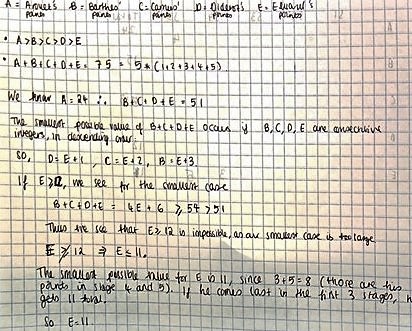 A = Annet's points B = Barthes' points C = Camus' points D = Diderot's points E = Eduard's points
• A>B>C>D>E
• A+B+C+D+E = 75 = 5*(1+2+3+4+5).
We know A=24 ∴ B+C+D+E = 51
The smallest possible value of B+C+D+E occurs if B,C,D,E are consecutive
integers, in descending order.
So, D=E+1, C=E+2, B=E+3.
If E≥12, we see for the smallest case
B+C+D+E = 4E+6 ≥ 54 > 51
Thus we see that E≥12 is impossible, as our smallest case is too large
E ≱ 12 ⇒ E≤11.
The smallest possible value for E is 11, since 3+5=8 (those are his
points in stage 4 and 5). If he comes last in the first 3 stages, h
gets 11 total.
So E=11.